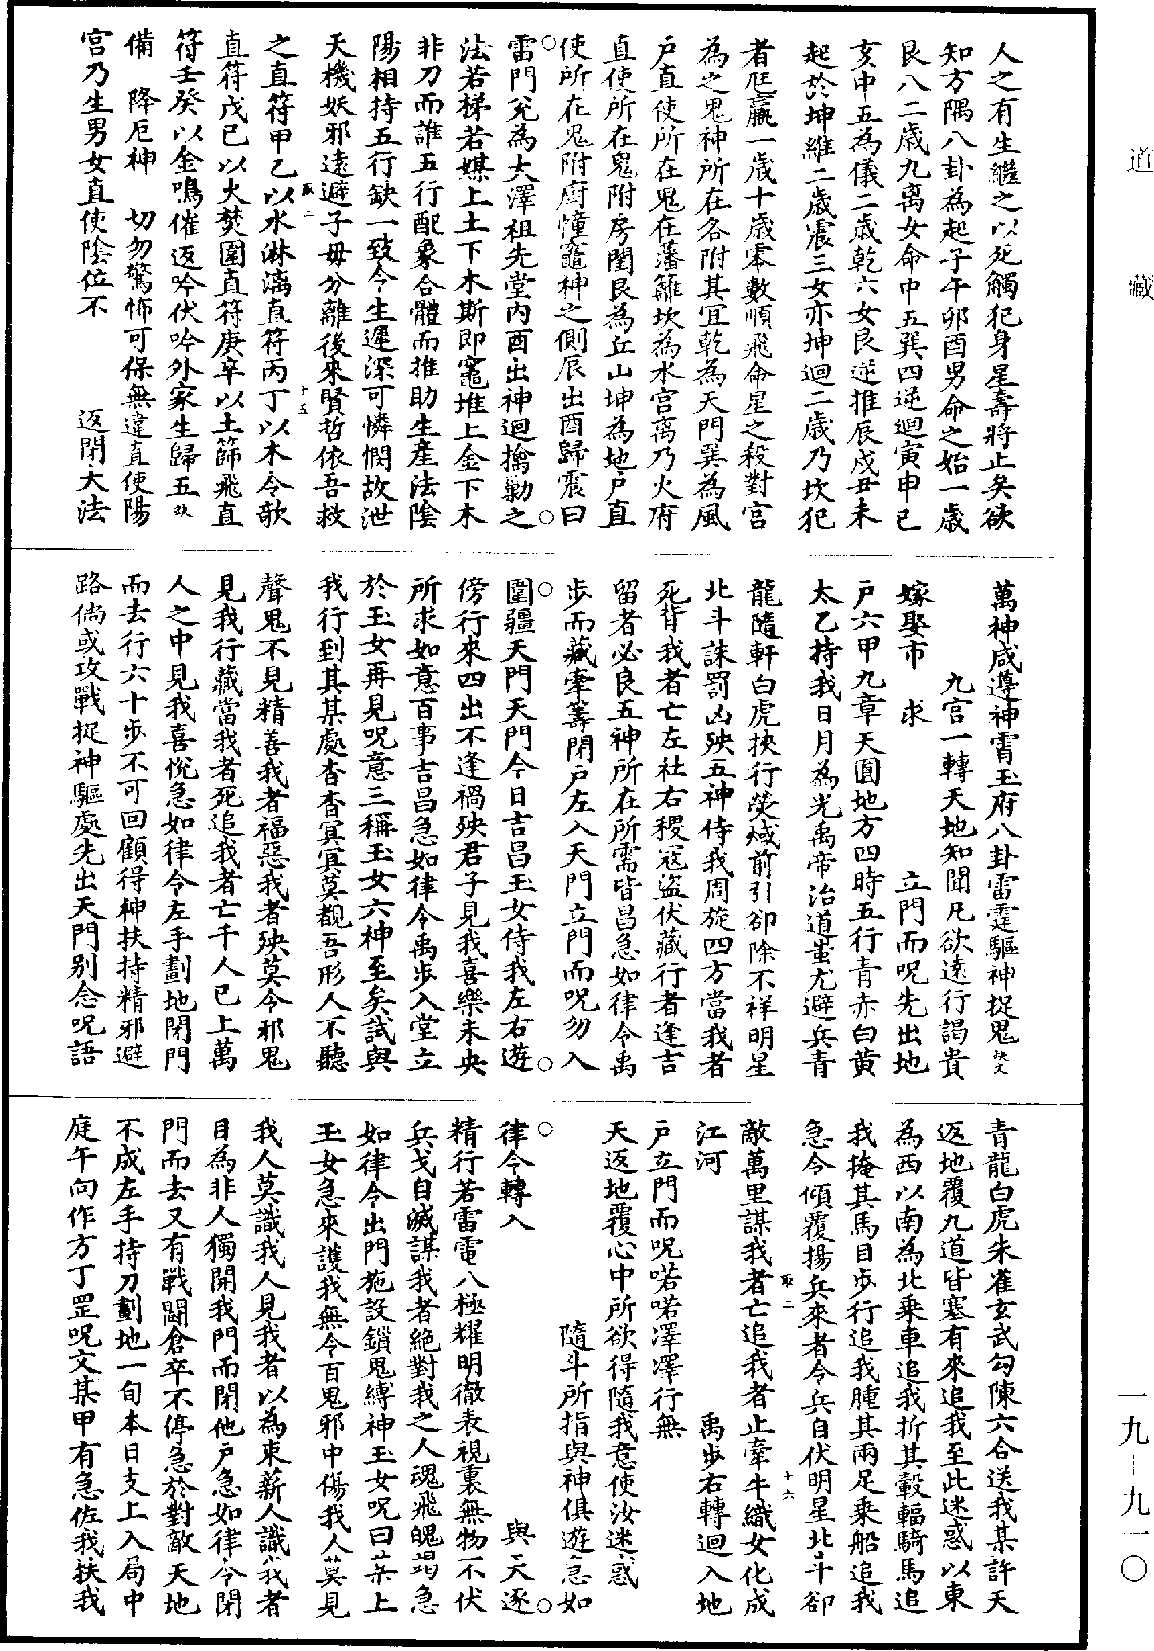 道藏
人之有生繼之以死觸犯身星壽將止矣欲
知方隅八卦為起子午卯酉男命之始一歲
艮八二歲九离女命中五巽四逆迴寅申巳
亥中五為儀二歲乾六女艮逆推辰戌丑未
起於坤維二歲震三女亦坤迴二歲乃坎犯
者尫羸一歲十歲零數順飛命星之殺對宮
為之鬼神所在各附其宜乾為天門巽為風
戶直使所在鬼在藩籬坎為水宮离乃火府
直使所在鬼附房闈艮為丘山坤為地戶直
使所在鬼附廚㡖竈神之側辰出酉歸震曰
雷門兌為大澤祖先堂內酉出神迴擒勦之
法若梯若媒上土下木斯即竈堆上金下木
非刀而誰五行配象合體而推助生產法陰
陽相持五行缺一致令生遲深可憐憫故泄
天機妖邪遠避子母分離後來賢哲依吾救
之直符甲乙以水淋漓直符丙丁以木令欹
直符戊己以火焚圍直符庚辛以土篩飛直
符壬癸以金鳴催返吟伏吟外家生歸五
備　降厄神　切勿驚怖可保無違直使陽
宮乃生男女直使陰位不　　返閉大法
萬神咸遵神霄玉府八卦雷霆驅神捉鬼訣文
九宮一轉天地知聞凡欲遠行謁貴
嫁娶市　求　　立門而呪先出地
戶六甲九章天圓地方四時五行青赤白黃
太乙持我日月為光禹帝治道蚩尤避兵青
龍隨軒白虎挾行熒惑前引卻除不祥明星
北斗誅罰凶殃五神侍我周旋四方當我者
死背我者亡左社右稷寇盜伏藏行者逢吉
留者必良五神所在所需皆昌急如律令禹
步而藏牽籌閉戶左入天門立門而呪勿入
圍疆天門天門今日吉昌玉女侍我左右遊
傍行來四出不逢禍殃君子見我喜樂未央
所求如意百事吉昌急如律令禹步入堂立
於玉女再見呪意三稱玉女六神至矣試與
我行到其某處杳杳冥冥莫覩吾形人不聽
聲鬼不見精善我者福惡我者殃莫令邪鬼
見我行藏當我者死追我者亡千人已上萬
人之中見我喜悅急如律令左手劃地閉門
而去行六十步不可回顧得神扶持精邪避
路倘或攻戰捉神驅處先出天門別念呪語
青龍白虎朱雀玄武勾陳六合送我某許天
返地覆九道皆塞有來追我至此迷惑以東
為西以南為北乘車追我折其轂輻騎馬追
我掩其馬目步行追我腫其兩足乘船追我
急令傾覆揚兵來者令兵自伏明星北斗卻
敵萬里謀我者亡追我者止牽牛織女化成
江河　　禹步右轉迴入地
戶立門而呪喏喏澤澤行無
天返地覆心中所欲得隨我意使汝迷惑
隨斗所指與神俱遊急如
律令轉入　　與天逐
精行若雷電八極耀明徹表視裏無物不伏
兵戈自滅謀我者絕對我之人魂飛魄竭急
如律令出門施設鎖鬼縛神玉女呪曰某上
玉女急來護我無令百鬼邪中傷我人莫見
我人莫識我人見我者以為束薪人識我者
目為非人獨開我門而閉他戶急如律令閉
門而去又有戰鬭倉卒不停急於對敵天地
不成左手持刀劃地一旬本日支上入局中
庭午向作方丁罡呪文某甲有急佐我扶我
一九-九一〇